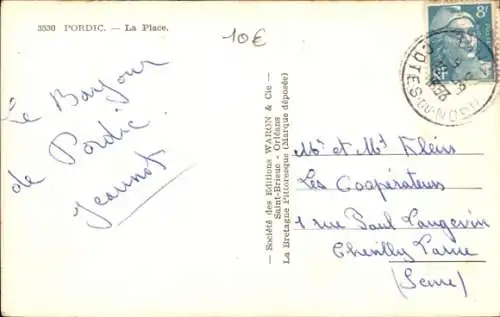 3530 PORDIC. — La Place.
10€
8F
COTES-DU-NORD
Le Bonjour
de Pordic.
Jeannot
— Société des Editions WARON & Cie —
Saint-Brieuc - Orléans
La Bretagne Pittoresque (Marque déposée)
Mr et Md Klein
Les Coopérateurs
1 rue Paul Langevin
Chevilly Larue
(Seine)